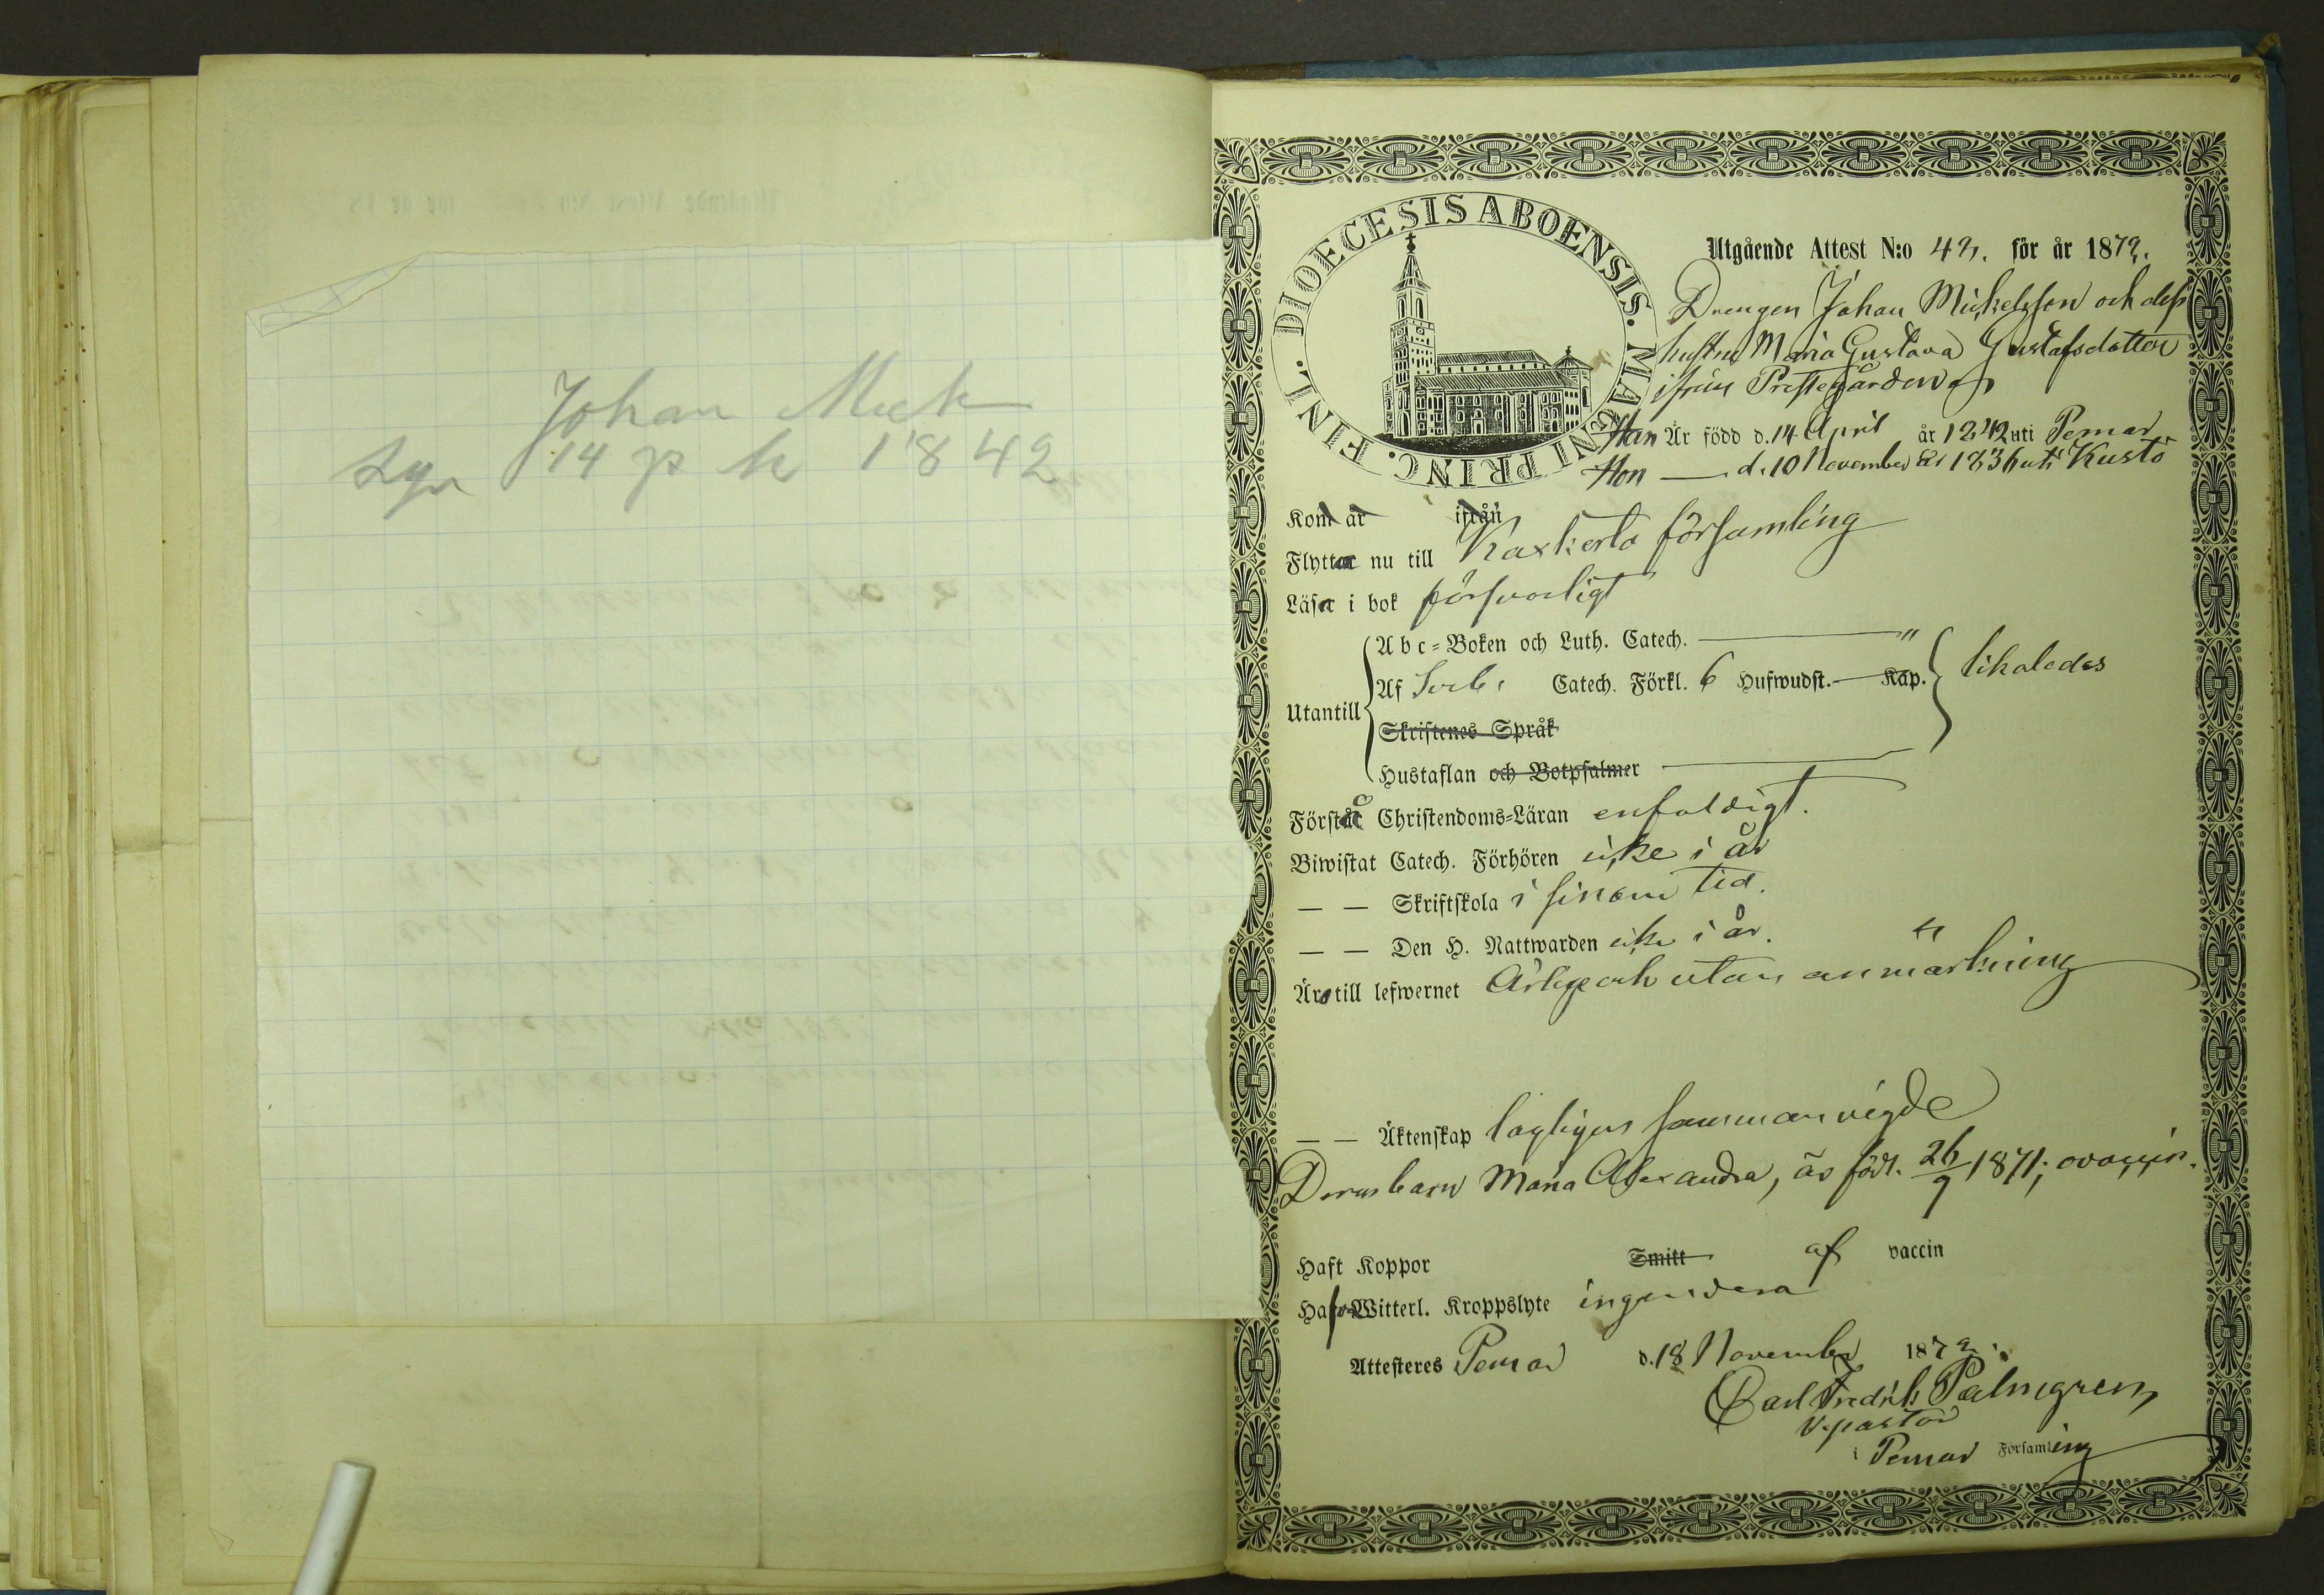 Johan Mick
syn 14 p k 1842
DIOECESIS ABOENSIS. MAGNI PRINC. FINL.
Utgående Attest N:o 42. för år 1872.
Drengen Johan Mickelsson och dess
hustru Maria Gustava Gustafsdotter
ifrån Prestegården
Han Är född d. 14 April år 1842 uti Pemar
Hon — d. 10 November år 1836 uti Kustö
Kom år ifrån
Flytta nu till Kaxkerta församling
Läsa i bok försvarligt
Abc-Boken och Luth. Catech. — "
Af Sverb: Catech. Förkl. 6 Hufwudst. — Kap. likaledes
Utantill
Skriftenes Språk
Hustaflan och Botpsalmer —
Förstå Christendoms-Läran enfaldigt.
Biwistat Catech. Förhören icke i år
— — Skriftskola i sinom tid.
— — Den H. Nattwarden icke i år.
Äro till lefwernet ärlige och utan anmärkning
— — Äktenskap lagligen sammanvigde
Deras barn Maria Alexandra, är född. 26/9 1871; ovaccin.
Haft Koppor Smitt af vaccin
Hafva Witterl. Kroppslyte ingendera
Attesteres Pemar d. 18 November 1872.
Carl Fredrik Palmgren
V. pastor
i Pemar Församling